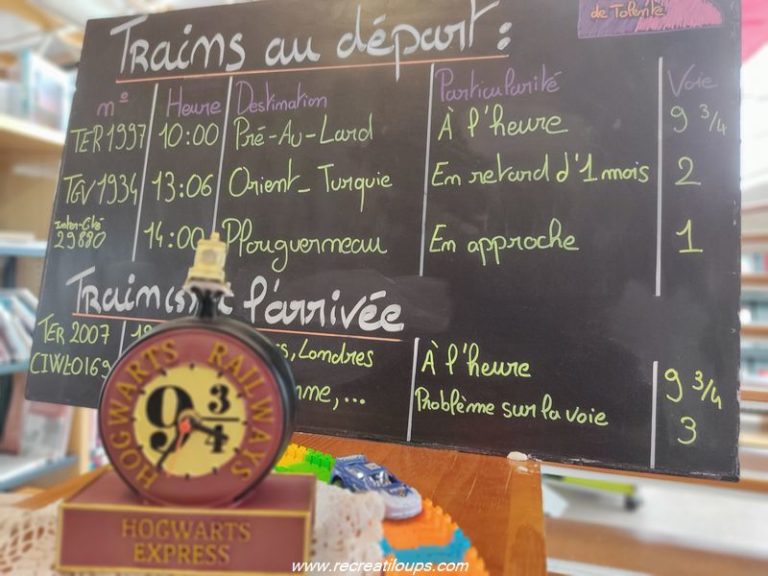 de Tolérité
Trains au départ :
n° Heure Destination Particularité Voie
TER 1997 10:00 Pré-Au-Lard À l'heure 9 3/4
TGV 1934 13:06 Orient-Turquie En retard d'1 mois 2
Inter-Cité 29880 14:00 Plouguerneau En approche 1
l'arrivée
TER 2007 Londres À l'heure 9 3/4
... Problème sur la voie 3
HOGWARTS RAILWAYS
9 3/4
HOGWARTS
EXPRESS
www.recreatiloups.com